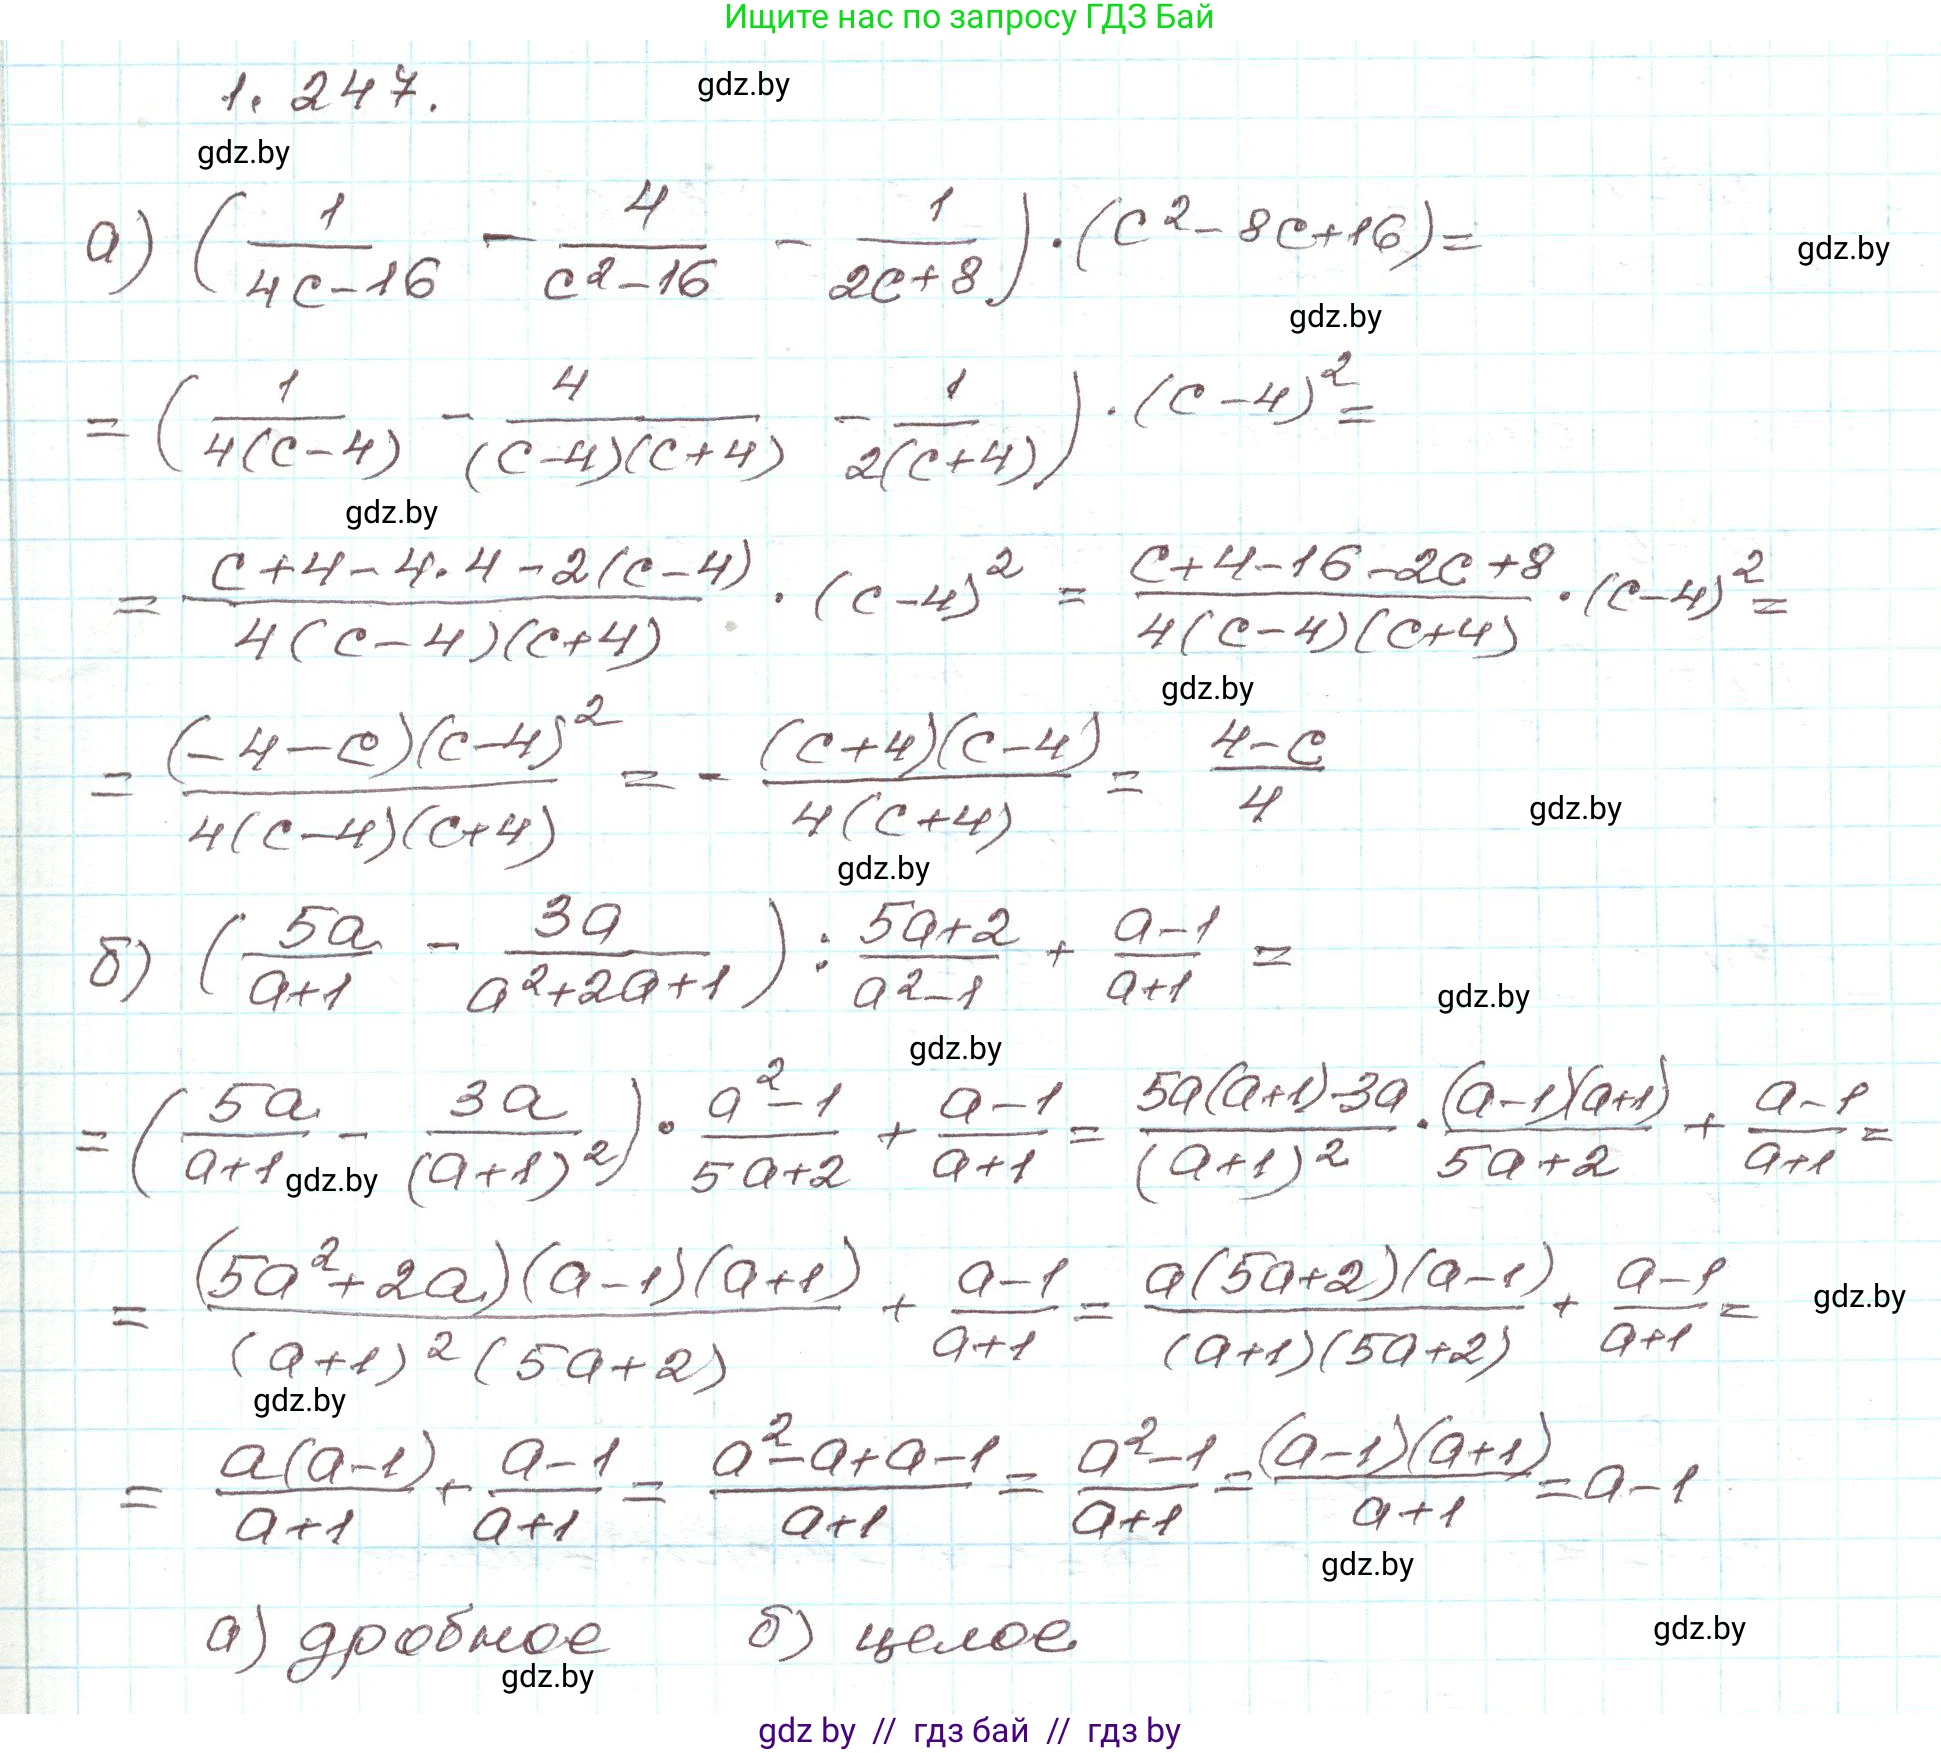 Ищите нас по запросу ГДЗ Бай
1.247. gdz.by
gdz.by
а) (1/(4c-16) - 4/(c²-16) - 1/(2c+8)) · (c²-8c+16) = gdz.by
gdz.by
= (1/(4(c-4)) - 4/((c-4)(c+4)) - 1/(2(c+4))) · (c-4)² =
gdz.by
= (c+4-4·4-2(c-4))/(4(c-4)(c+4)) · (c-4)² = (c+4-16-2c+8)/(4(c-4)(c+4)) · (c-4)² =
gdz.by
= ((-4-c)(c-4)²)/(4(c-4)(c+4)) = - ((c+4)(c-4))/(4(c+4)) = (4-c)/4 gdz.by
gdz.by
б) (5a/(a+1) - 3a/(a²+2a+1)) : (5a+2)/(a²-1) + (a-1)/(a+1) = gdz.by
gdz.by
= (5a/(a+1) - 3a/(a+1)²) · (a²-1)/(5a+2) + (a-1)/(a+1) = (5a(a+1)-3a)/(a+1)² · ((a-1)(a+1))/(5a+2) + (a-1)/(a+1) =
gdz.by
= ((5a²+2a)(a-1)(a+1))/((a+1)²(5a+2)) + (a-1)/(a+1) = (a(5a+2)(a-1))/((a+1)(5a+2)) + (a-1)/(a+1) = gdz.by
gdz.by
= (a(a-1))/(a+1) + (a-1)/(a+1) = (a²-a+a-1)/(a+1) = (a²-1)/(a+1) = ((a-1)(a+1))/(a+1) = a-1
gdz.by
а) дробное б) целое gdz.by
gdz.by
gdz by // гдз бай // гдз by